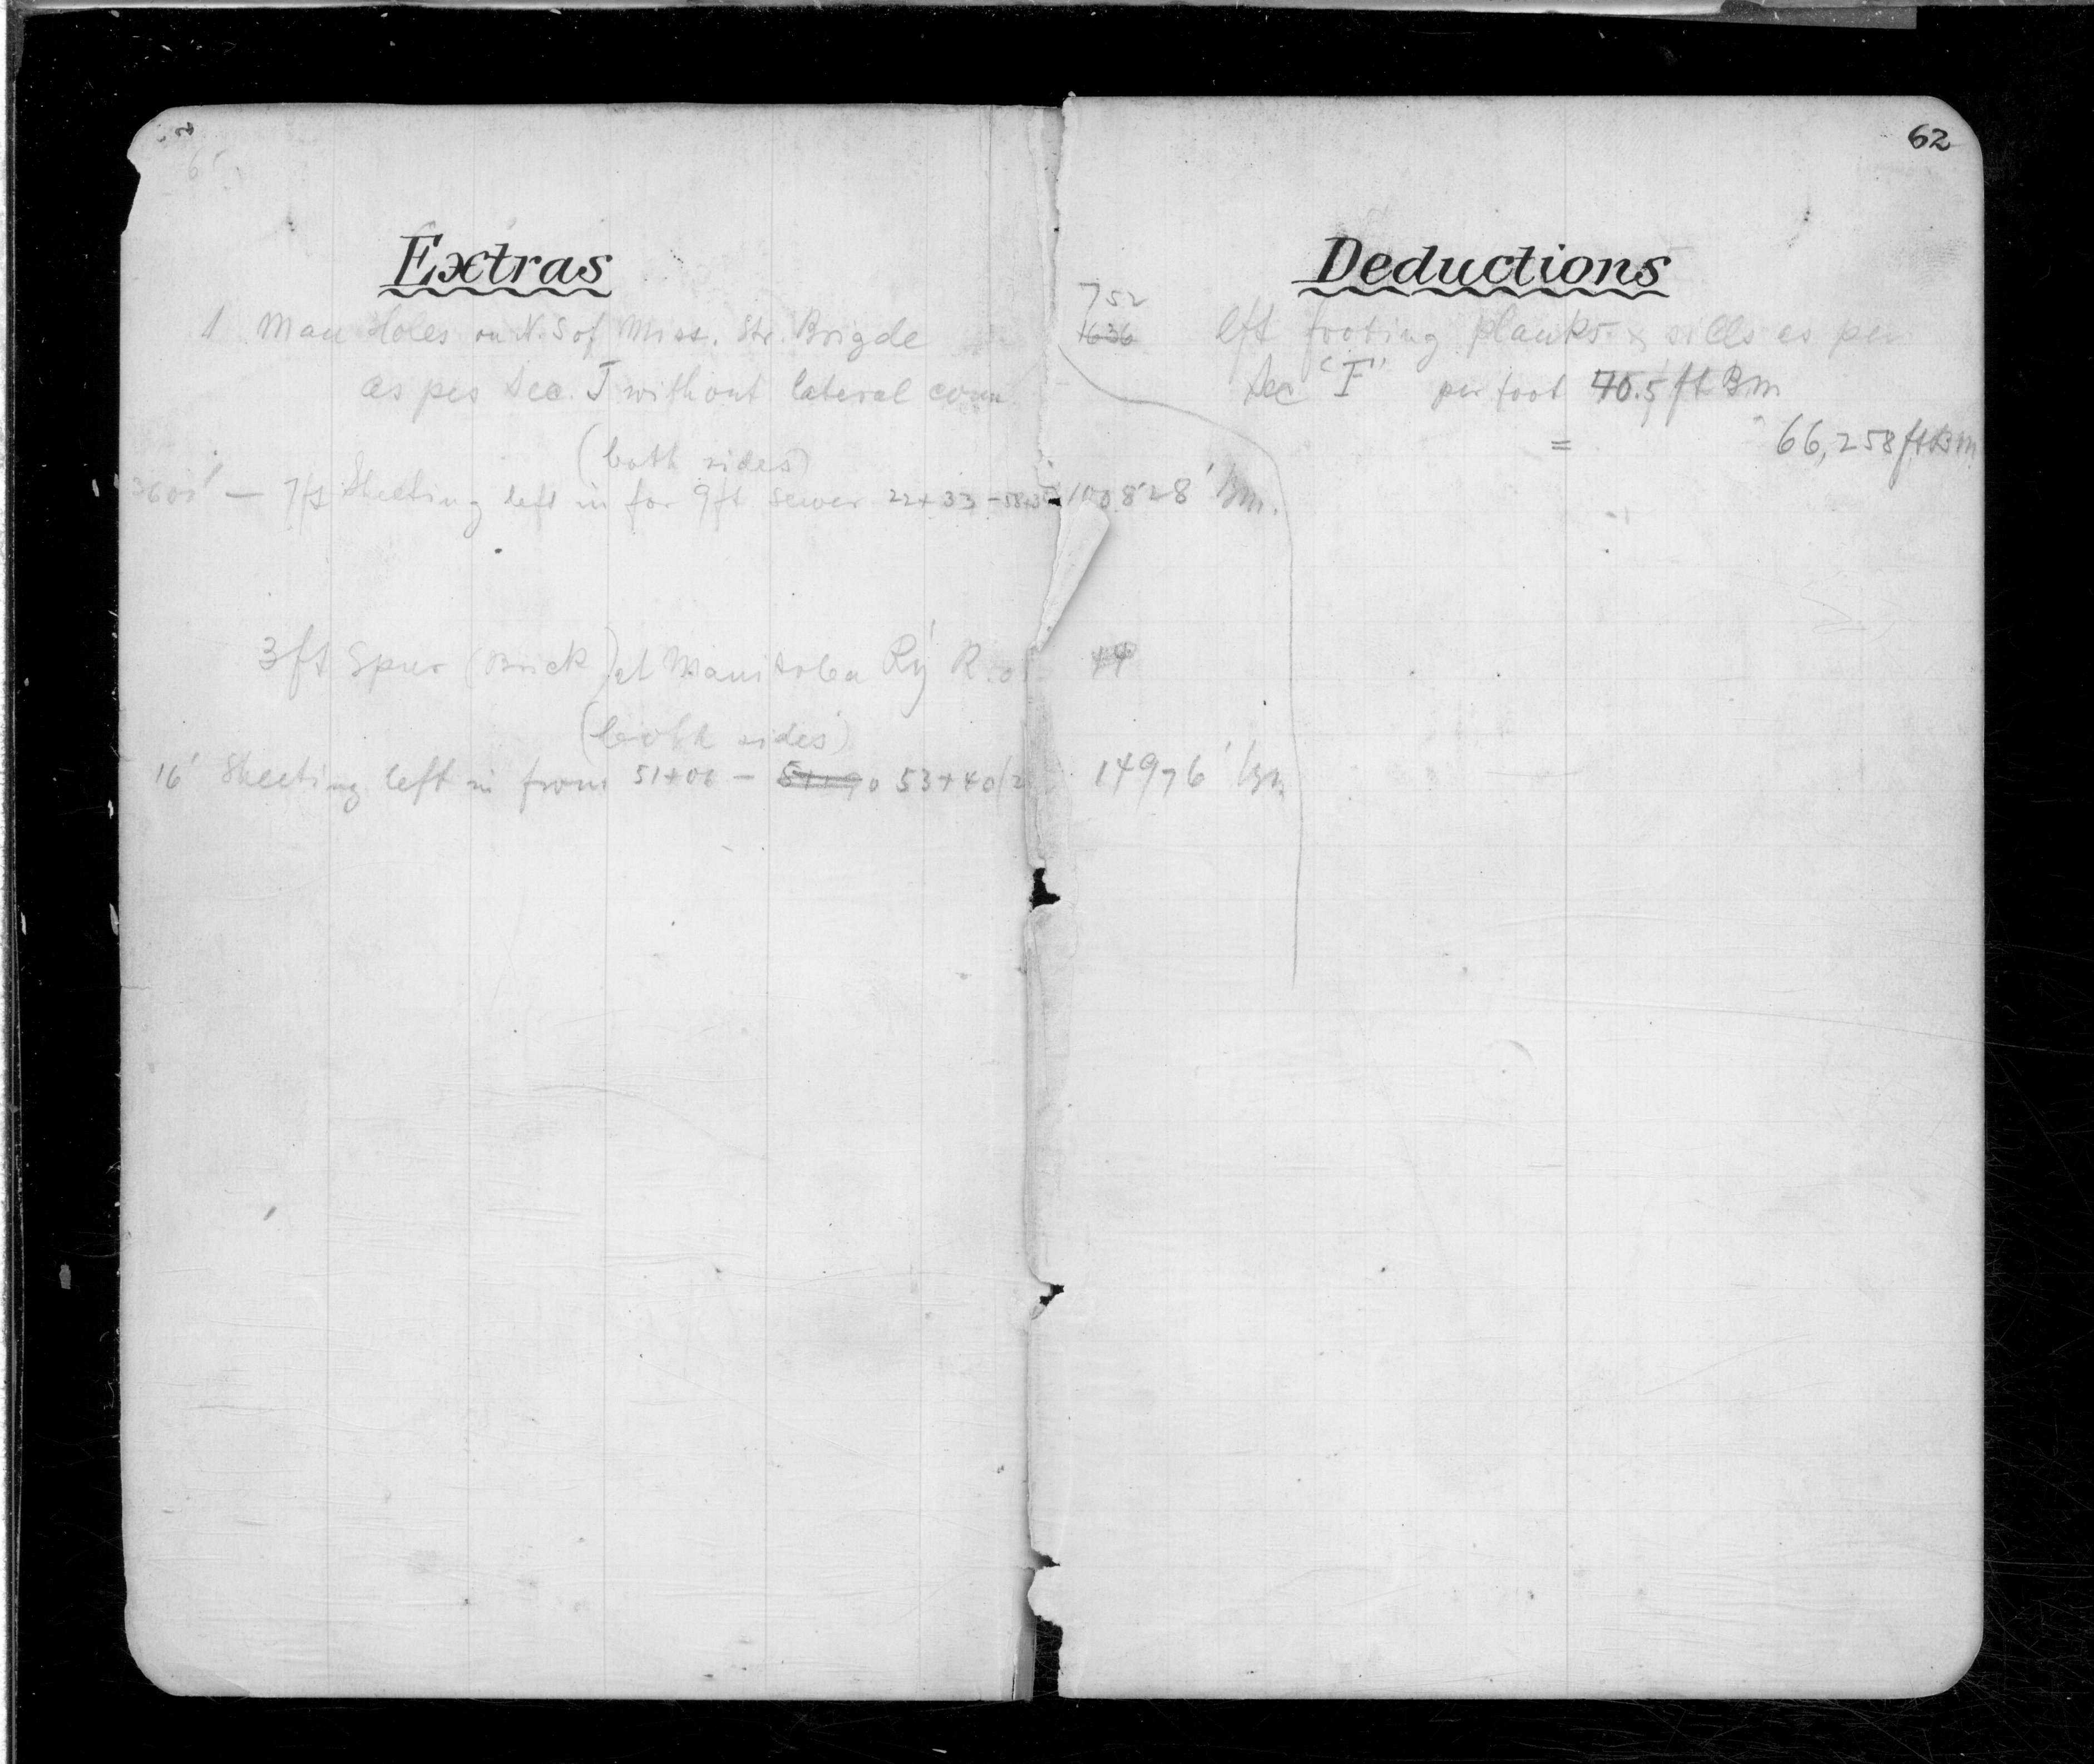 Extras
1 Man Holes on N. S of Miss. Str. Brigde
as per Sec. J without lateral conn
(both sides)
3601' — 7ft Sheeting left in for 9ft sewer 22+33 - 58+3 100828' Bm.
3ft Spur (Brick) at Manitoba Ry R. o 14
(both sides)
16' Sheeting left in from 51+06 - 53+40 14976' Bm
62
Deductions
752
1636 lft footing planks & sills as per
Sec "F" per foot 40.5 ft Bm
= 66,258 ft Bm